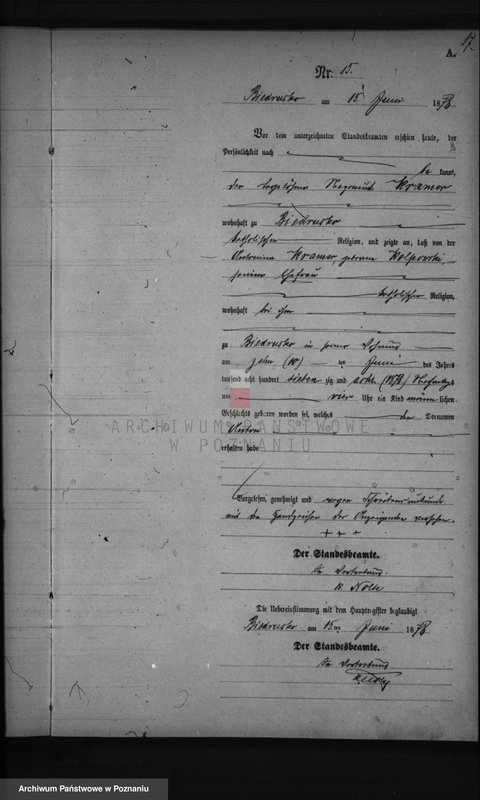 17.
A.
Nr. 15.
Biedrusko am 15. Juni 1878
Vor dem unterzeichneten Standesbeamten erschien heute, der
Persönlichkeit nach
be kannt,
der Kramer
wohnhaft zu Biedrusko
katholischer Religion, und zeigte an, daß von der
Kramer, geborne
seiner Ehefrau
katholischer Religion,
wohnhaft bei ihm
zu Biedrusko in seiner Wohnung
am zehn (10) ten Juni des Jahres
tausend acht hundert sieben zig und acht (1878) Nachmittags
um vier Uhr ein Kind männ lichen
Geschlechts geboren worden sei, welches den Vornamen
ARCHIWUM PAŃSTWOWE
W POZNANIU
Anton
erhalten habe
Vorgelesen, genehmigt und wegen
mit den Handzeichen der versehen.
+ + +
Der Standesbeamte.
In Vertretung.
K. Nolte
Die Uebereinstimmung mit dem Hauptregister beglaubigt
Biedrusko am 15ten Juni 1878
Der Standesbeamte.
In Vertretung
K. Nolte
Archiwum Państwowe w Poznaniu